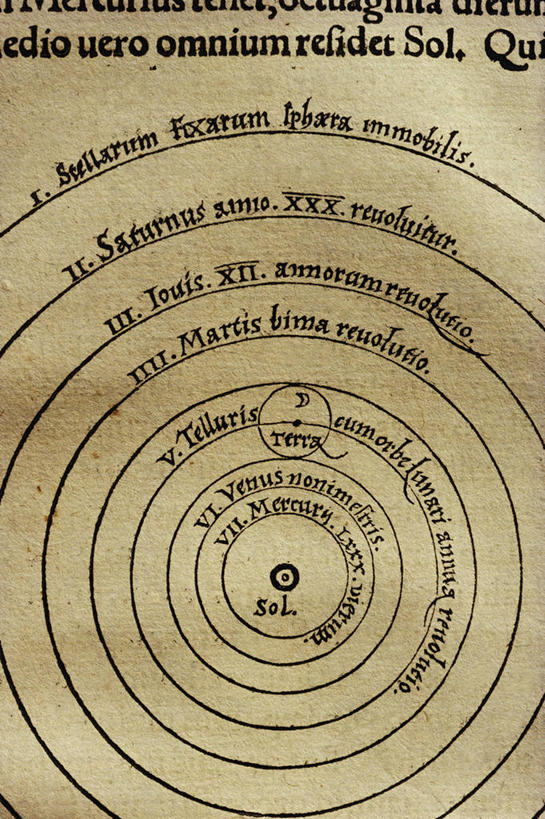 Mercurius tenet, octuaginta dierum
medio uero omnium residet Sol. Qui
I. Stellarum fixarum sphæra immobilis.
II. Saturnus anno. XXX. reuoluitur.
III. Iouis. XII. annorum reuolutio.
IIII. Martis bima reuolutio.
V. Telluris
Terra
cum orbe lunari annua reuolutio.
VI. Venus nonimestris.
VII. Mercurij. LXXX. dierum.
Sol.